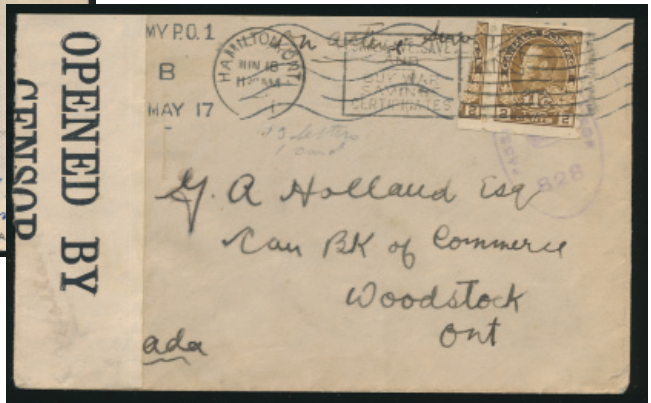 OPENED BY
CENSOR
MY P.O. 1
B
MAY 17
HAMILTON, ONT.
JUN 18
On active
SAVE
AND
BUY WAR
SAVING
CERTIFICATES
2 2
828
13 letters
1 card
G. A Holland Esq
Can BK of Commerce
Woodstock
Ont
ada